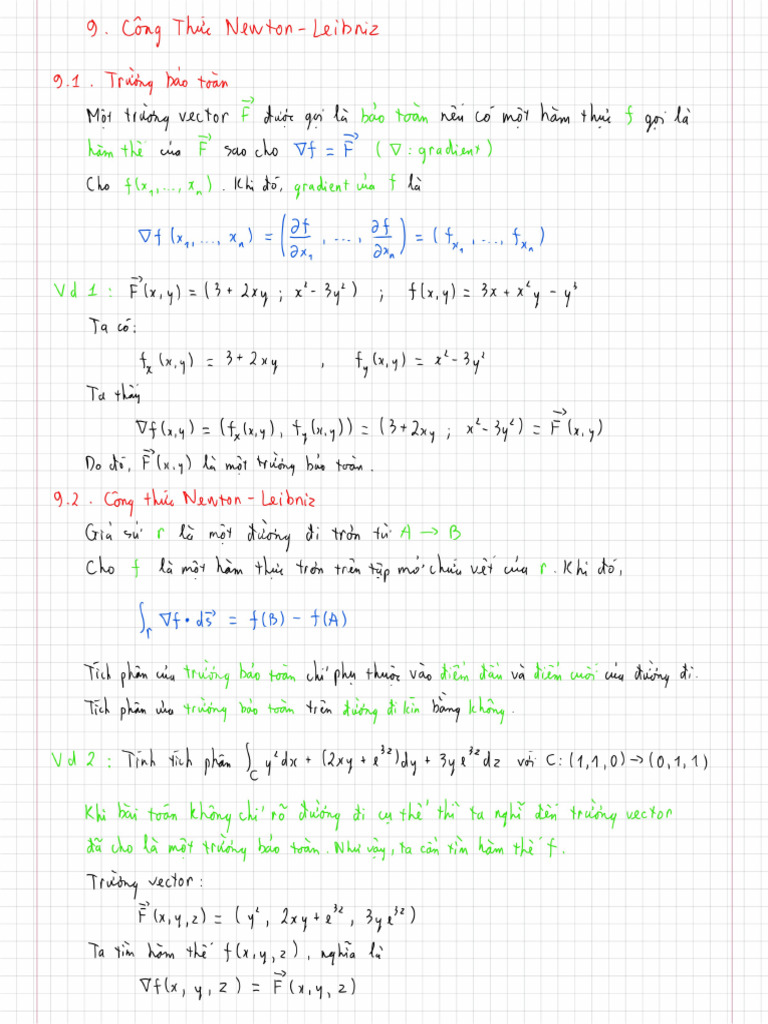 9. Công Thức Newton-Leibniz
9.1. Trường bảo toàn
Một trường vector F⃗ được gọi là bảo toàn nếu có một hàm thực f gọi là
hàm thế của F⃗ sao cho ∇f = F⃗ (∇: gradient)
Cho f(x₁,...,xₙ). Khi đó, gradient của f là
∇f(x₁,...,xₙ) = (∂f/∂x₁,...,∂f/∂xₙ) = (f_x₁,...,f_xₙ)
Vd 1: F⃗(x,y) = (3 + 2xy ; x² - 3y²) ; f(x,y) = 3x + x²y - y³
Ta có:
f_x(x,y) = 3 + 2xy , f_y(x,y) = x² - 3y²
Ta thấy
∇f(x,y) = (f_x(x,y), f_y(x,y)) = (3 + 2xy ; x² - 3y²) = F⃗(x,y)
Do đó, F⃗(x,y) là một trường bảo toàn.
9.2. Công thức Newton-Leibniz
Giả sử r là một đường đi trơn từ A → B
Cho f là một hàm thực trơn trên tập mở chứa vết của r. Khi đó,
∫_r ∇f • ds⃗ = f(B) - f(A)
Tích phân của trường bảo toàn chỉ phụ thuộc vào điểm đầu và điểm cuối của đường đi.
Tích phân của trường bảo toàn trên đường đi kín bằng không.
Vd 2: Tính tích phân ∫_C y²dx + (2xy + e³ᶻ)dy + 3ye³ᶻdz với C: (1,1,0) → (0,1,1)
Khi bài toán không chỉ rõ đường đi cụ thể thì ta nghĩ đến trường vector
đã cho là một trường bảo toàn. Như vậy, ta cần tìm hàm thế f.
Trường vector:
F⃗(x,y,z) = (y², 2xy + e³ᶻ, 3ye³ᶻ)
Ta tìm hàm thế f(x,y,z), nghĩa là
∇f(x,y,z) = F⃗(x,y,z)